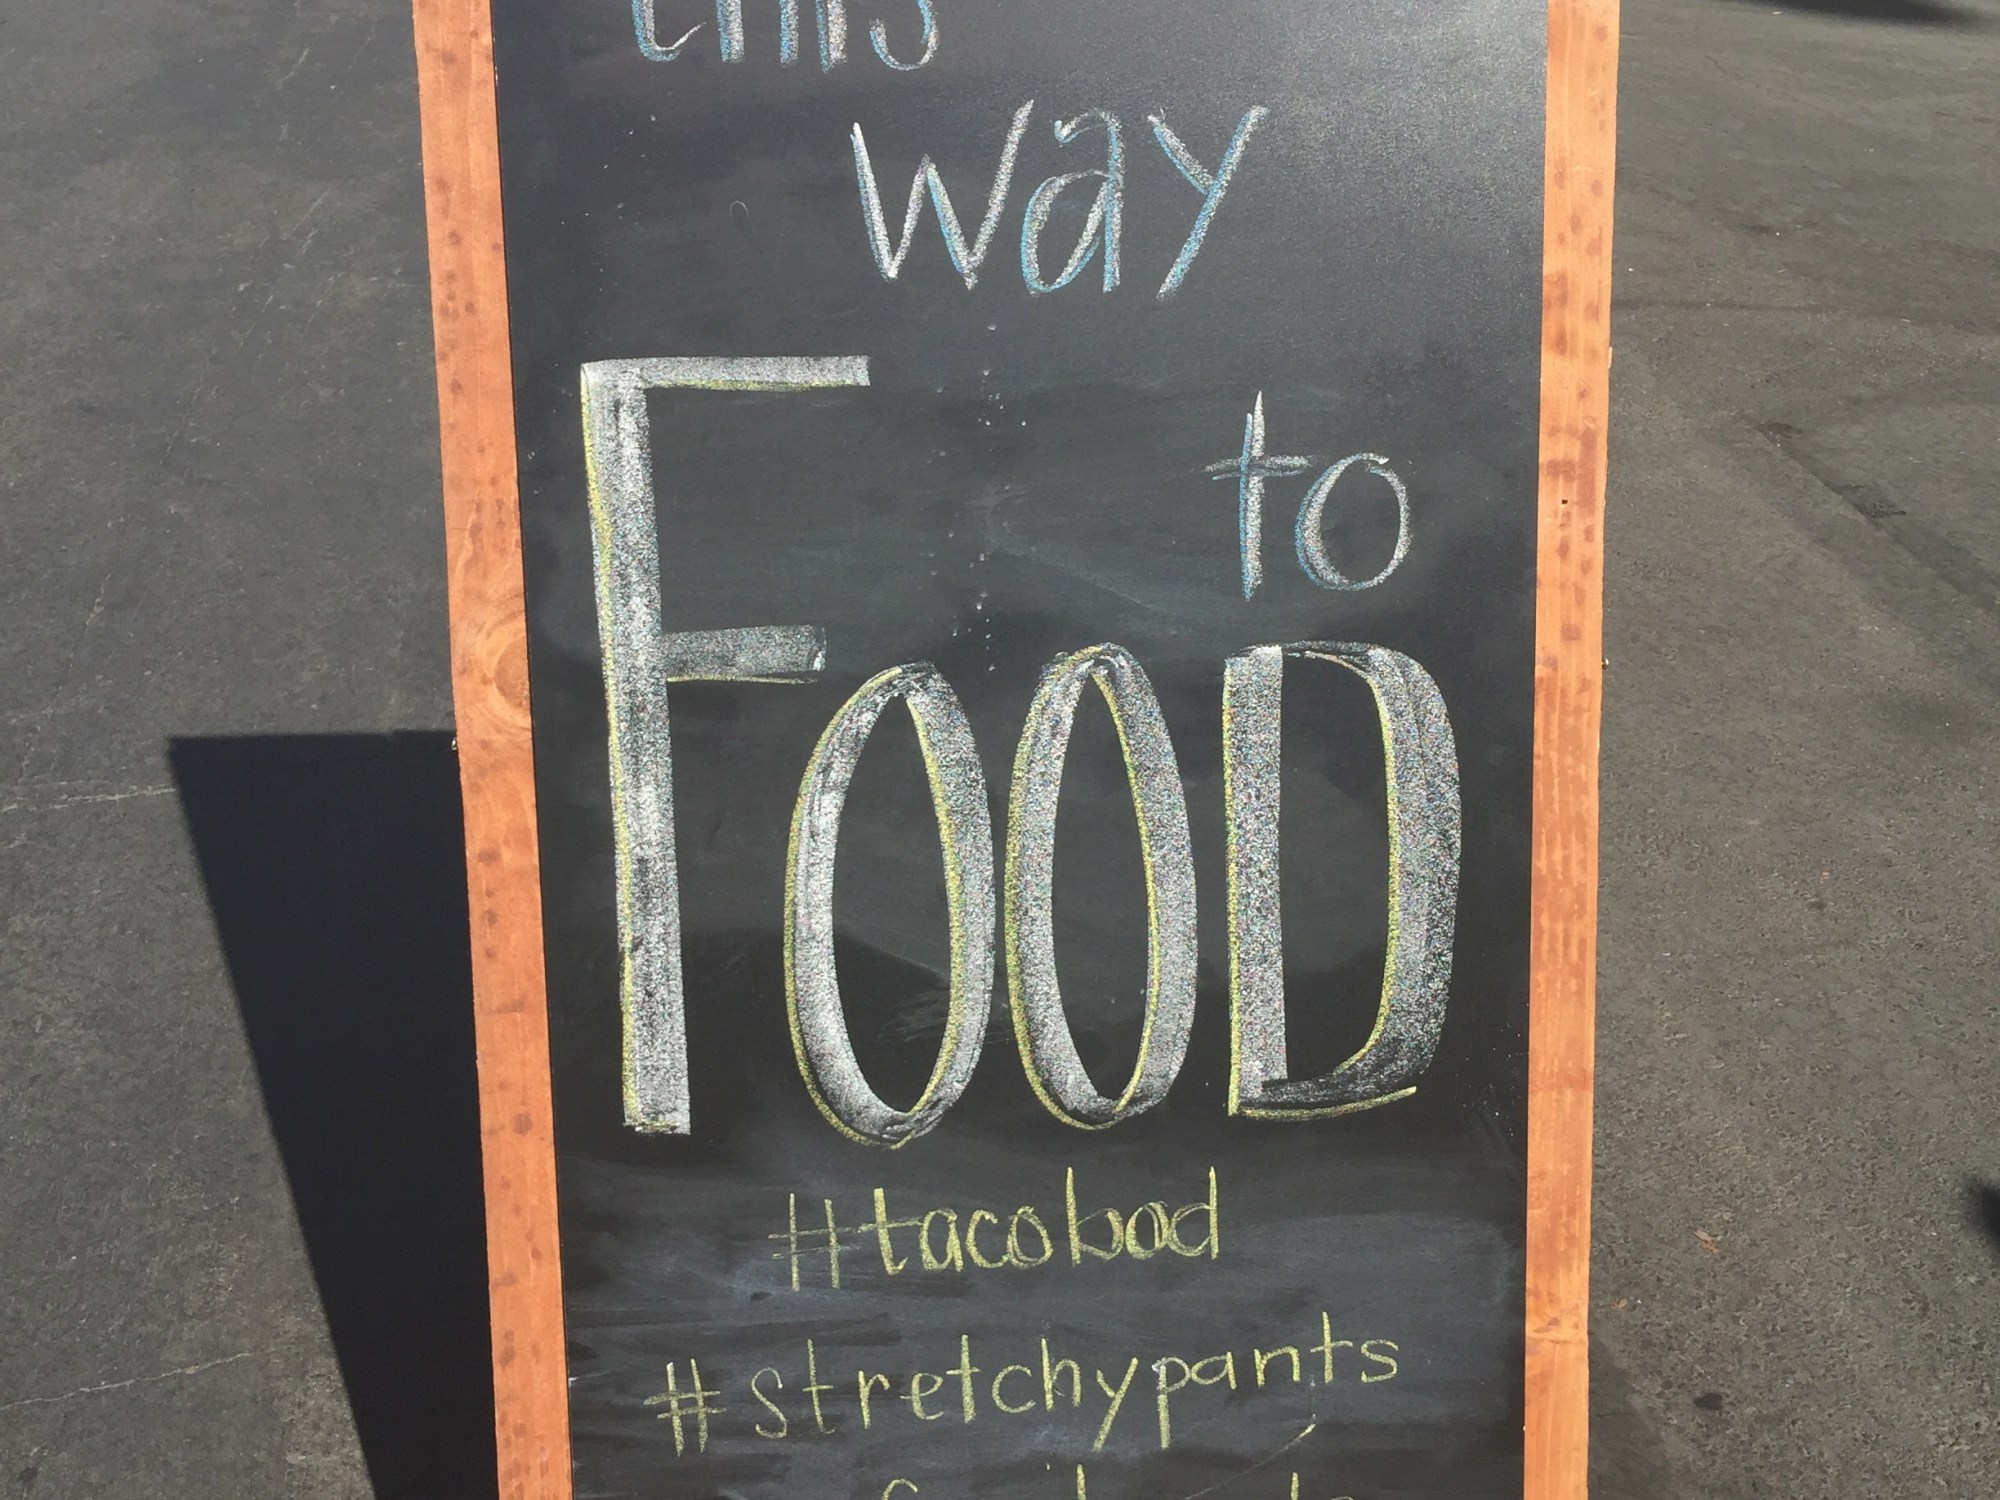 this
way
to
FOOD
#tacobod
#stretchypants